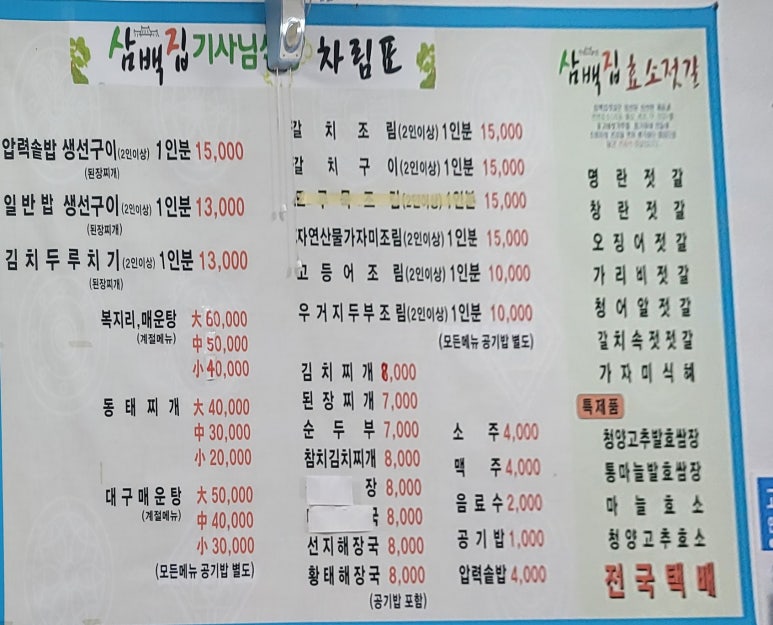 삼백집 기사님 차림표
압력솥밥 생선구이(2인이상) 1인분 15,000
(된장찌개)
일반밥 생선구이(2인이상) 1인분 13,000
(된장찌개)
김치두루치기(2인이상) 1인분 13,000
(된장찌개)
복지리,매운탕 大 60,000
(계절메뉴) 中 50,000
小 40,000
동태찌개 大 40,000
中 30,000
小 20,000
대구매운탕 大 50,000
(계절메뉴) 中 40,000
小 30,000
(모든메뉴 공기밥 별도)
갈치조림(2인이상) 1인분 15,000
갈치구이(2인이상) 1인분 15,000
조림(2인이상) 1인분 15,000
자연산물가자미조림(2인이상) 1인분 15,000
고등어조림(2인이상) 1인분 10,000
우거지두부조림(2인이상) 1인분 10,000
(모든메뉴 공기밥 별도)
김치찌개 8,000
된장찌개 7,000
순두부 7,000
참치김치찌개 8,000
장 8,000
국 8,000
선지해장국 8,000
황태해장국 8,000
(공기밥 포함)
소주 4,000
맥주 4,000
음료수 2,000
공기밥 1,000
압력솥밥 4,000
삼백집 효소젓갈
명란젓갈
창란젓갈
오징어젓갈
가리비젓갈
청어알젓갈
갈치속젓젓갈
가자미식혜
특제품
청양고추발효쌈장
통마늘발효쌈장
마늘효소
청양고추효소
전국택배